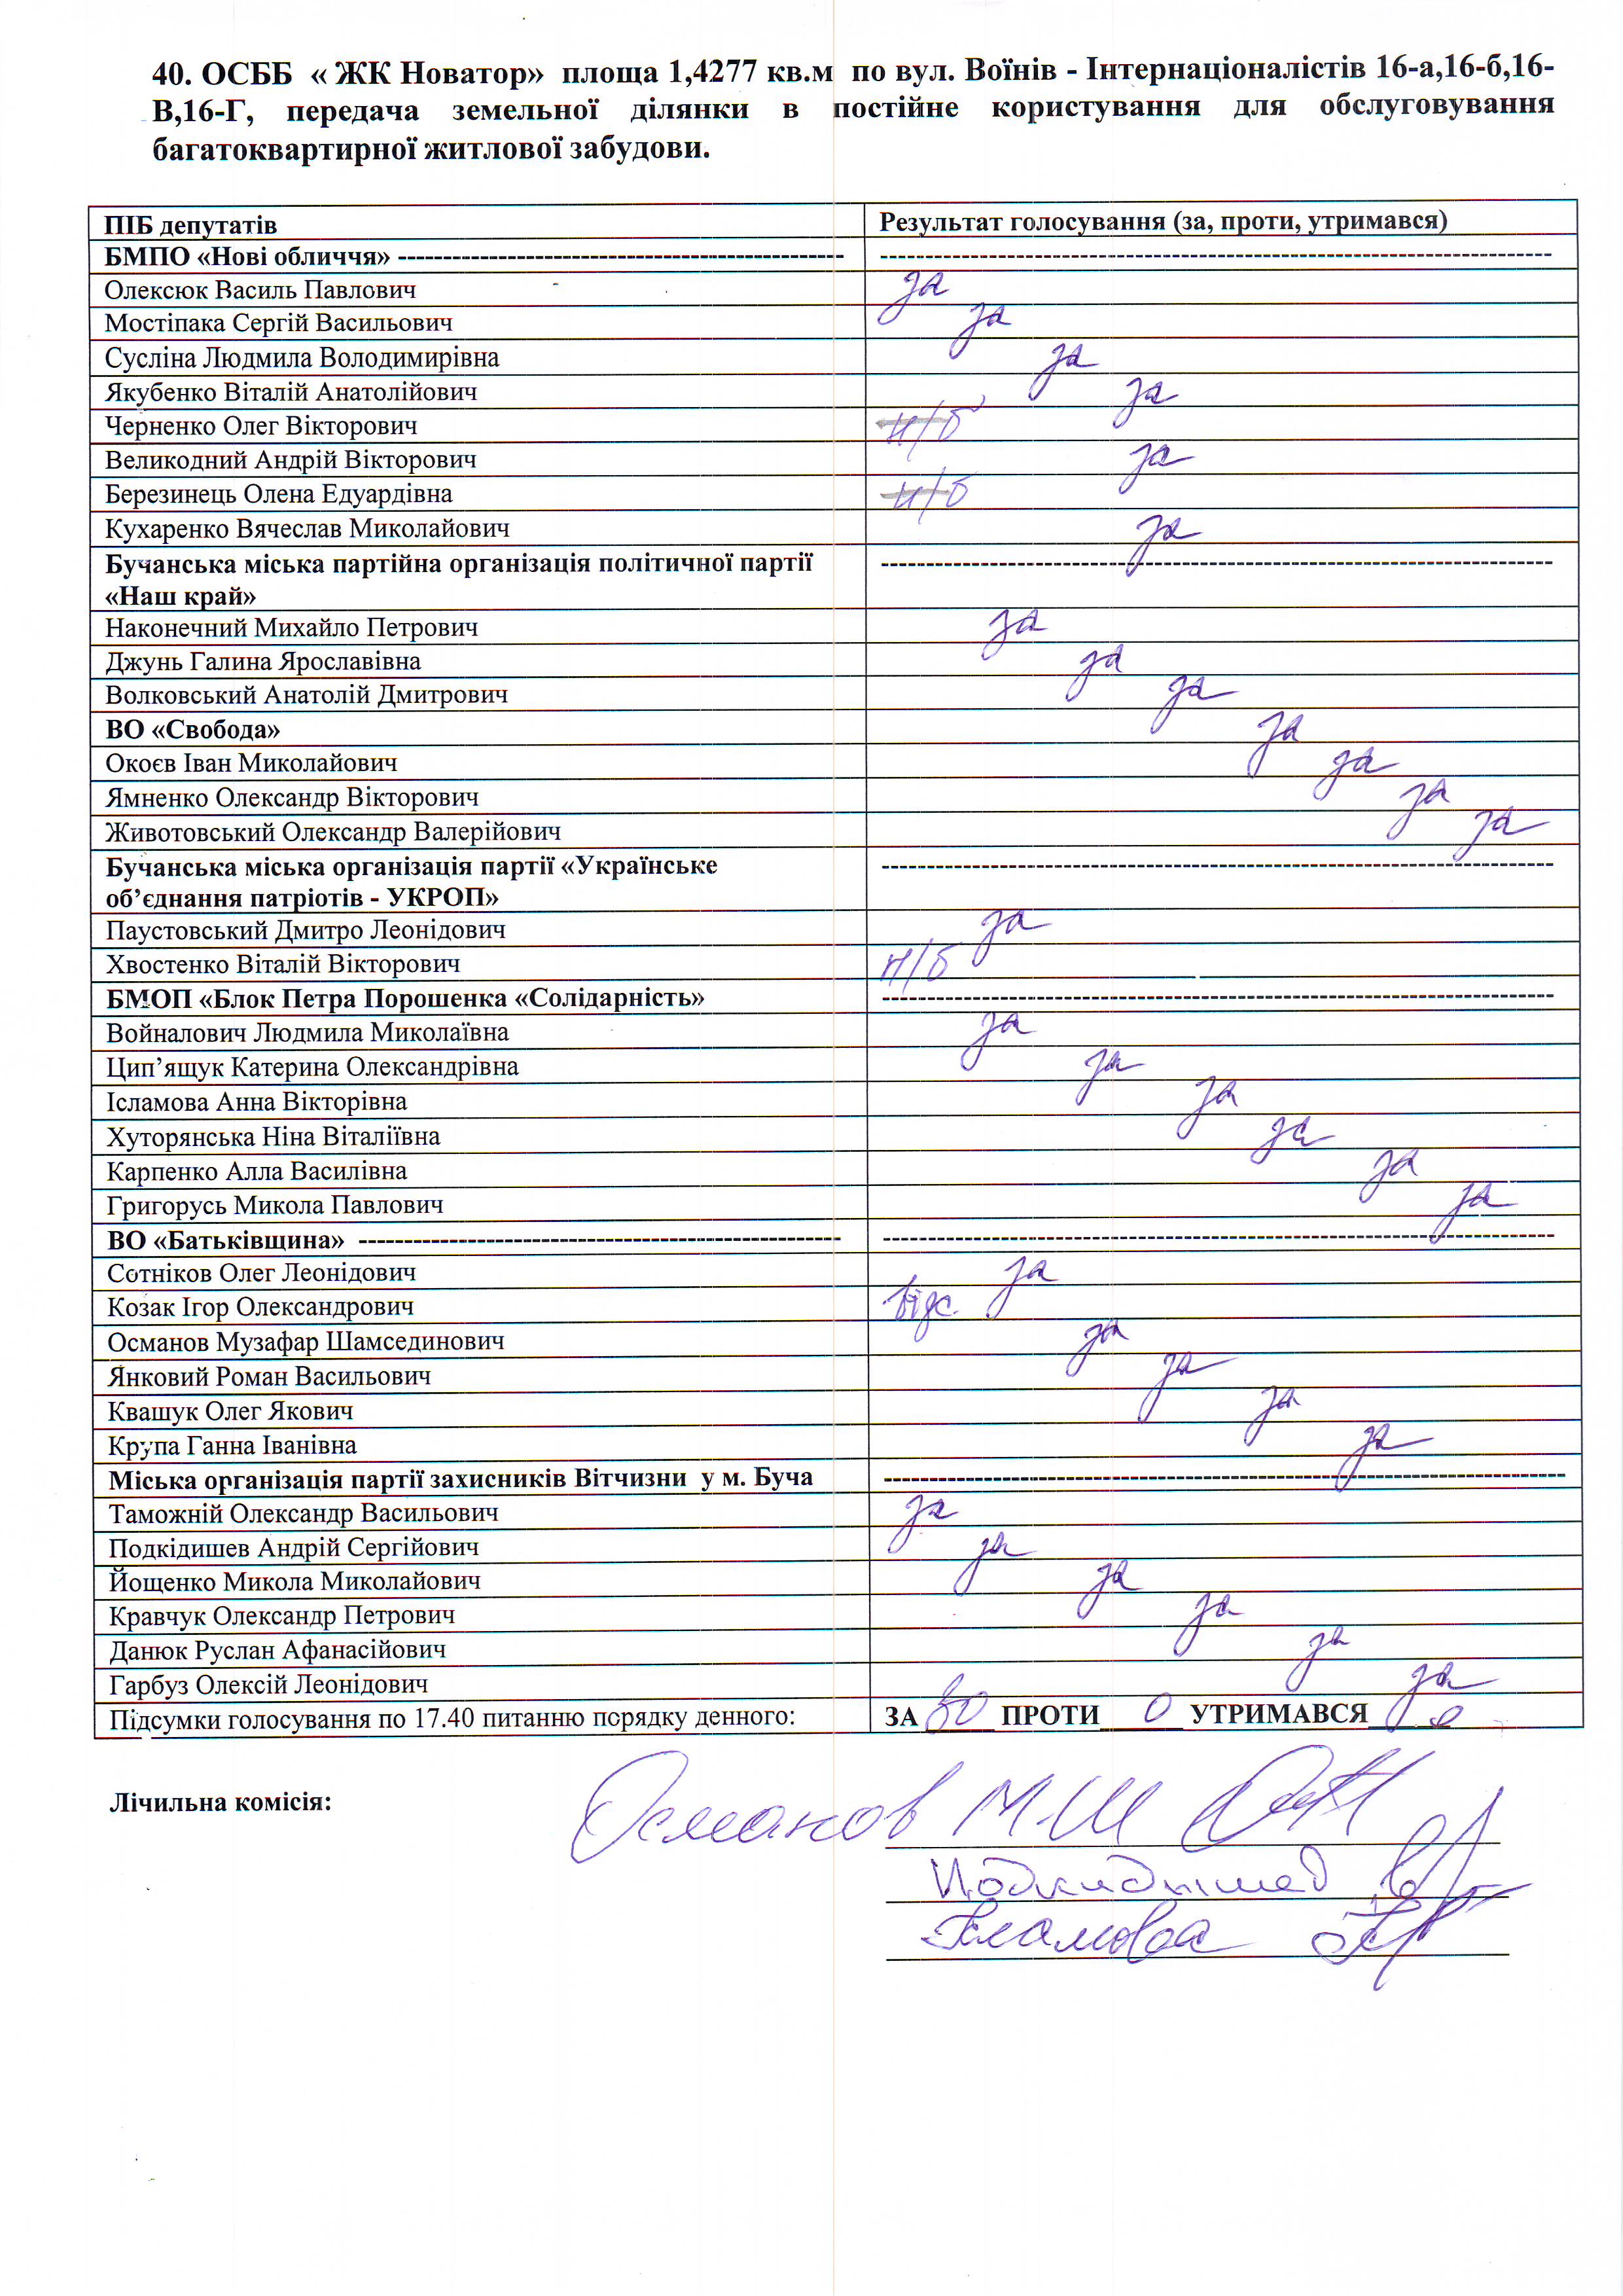 40. ОСББ « ЖК Новатор» площа 1,4277 кв.м по вул. Воїнів - Інтернаціоналістів 16-а,16-б,16-
В,16-Г, передача земельної ділянки в постійне користування для обслуговування
багатоквартирної житлової забудови.
ПІБ депутатів Результат голосування (за, проти, утримався)
БМПО «Нові обличчя» -------------------------------------------------- --------------------------------------------------------------------------
Олексюк Василь Павлович за
Мостіпака Сергій Васильович за
Сусліна Людмила Володимирівна за
Якубенко Віталій Анатолійович за
Черненко Олег Вікторович н/б
Великодний Андрій Вікторович за
Березинець Олена Едуардівна н/б
Кухаренко Вячеслав Миколайович за
Бучанська міська партійна організація політичної партії --------------------------------------------------------------------------
«Наш край»
Наконечний Михайло Петрович за
Джунь Галина Ярославівна за
Волковський Анатолій Дмитрович за
ВО «Свобода» за
Окоєв Іван Миколайович за
Ямненко Олександр Вікторович за
Животовський Олександр Валерійович за
Бучанська міська організація партії «Українське --------------------------------------------------------------------------
об’єднання патріотів - УКРОП»
Паустовський Дмитро Леонідович за
Хвостенко Віталій Вікторович н/б
БМОП «Блок Петра Порошенка «Солідарність» --------------------------------------------------------------------------
Войналович Людмила Миколаївна за
Цип’ящук Катерина Олександрівна за
Ісламова Анна Вікторівна за
Хуторянська Ніна Віталіївна за
Карпенко Алла Василівна за
Григорусь Микола Павлович за
ВО «Батьківщина» ------------------------------------------------------ --------------------------------------------------------------------------
Сотніков Олег Леонідович за
Козак Ігор Олександрович відс.
Османов Музафар Шамсединович за
Янковий Роман Васильович за
Квашук Олег Якович за
Крупа Ганна Іванівна за
Міська організація партії захисників Вітчизни у м. Буча ---------------------------------------------------------------------------
Таможній Олександр Васильович за
Подкідишев Андрій Сергійович за
Йощенко Микола Миколайович за
Кравчук Олександр Петрович за
Данюк Руслан Афанасійович за
Гарбуз Олексій Леонідович за
Підсумки голосування по 17.40 питанню порядку денного: ЗА 30 ПРОТИ 0 УТРИМАВСЯ 0
Лічильна комісія: Османов М.Ш
Ісламова